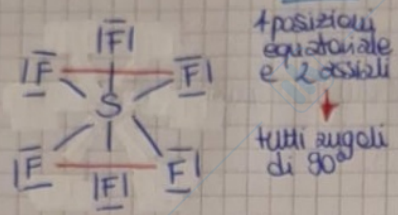 F
F F
S
F F
F
4 posizioni
equatoriale
e 2 assiali
tutti angoli
di 90°